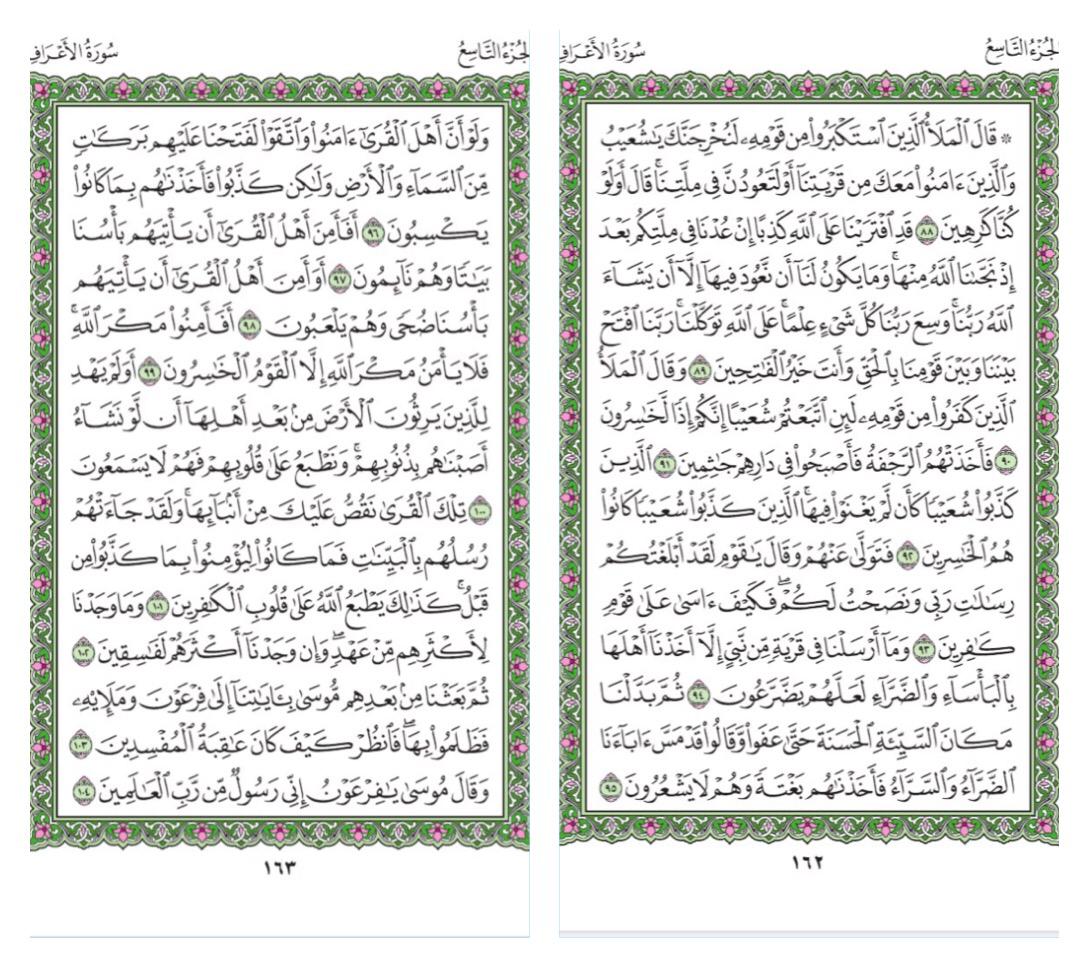 الجُزْءُ التَّاسِعُ
سُورَةُ الأَعْرَافِ
۞ قَالَ ٱلْمَلَأُ ٱلَّذِينَ ٱسْتَكْبَرُوا۟ مِن قَوْمِهِۦ لَنُخْرِجَنَّكَ يَٰشُعَيْبُ
وَٱلَّذِينَ ءَامَنُوا۟ مَعَكَ مِن قَرْيَتِنَآ أَوْ لَتَعُودُنَّ فِى مِلَّتِنَا ۚ قَالَ أَوَلَوْ
كُنَّا كَٰرِهِينَ ٨٨ قَدِ ٱفْتَرَيْنَا عَلَى ٱللَّهِ كَذِبًا إِنْ عُدْنَا فِى مِلَّتِكُم بَعْدَ
إِذْ نَجَّىٰنَا ٱللَّهُ مِنْهَا ۚ وَمَا يَكُونُ لَنَآ أَن نَّعُودَ فِيهَآ إِلَّآ أَن يَشَآءَ
ٱللَّهُ رَبُّنَا ۚ وَسِعَ رَبُّنَا كُلَّ شَىْءٍ عِلْمًا ۚ عَلَى ٱللَّهِ تَوَكَّلْنَا ۚ رَبَّنَا ٱفْتَحْ
بَيْنَنَا وَبَيْنَ قَوْمِنَا بِٱلْحَقِّ وَأَنتَ خَيْرُ ٱلْفَٰتِحِينَ ٨٩ وَقَالَ ٱلْمَلَأُ
ٱلَّذِينَ كَفَرُوا۟ مِن قَوْمِهِۦ لَئِنِ ٱتَّبَعْتُمْ شُعَيْبًا إِنَّكُمْ إِذًا لَّخَٰسِرُونَ
٩٠ فَأَخَذَتْهُمُ ٱلرَّجْفَةُ فَأَصْبَحُوا۟ فِى دَارِهِمْ جَٰثِمِينَ ٩١ ٱلَّذِينَ
كَذَّبُوا۟ شُعَيْبًا كَأَن لَّمْ يَغْنَوْا۟ فِيهَا ۚ ٱلَّذِينَ كَذَّبُوا۟ شُعَيْبًا كَانُوا۟
هُمُ ٱلْخَٰسِرِينَ ٩٢ فَتَوَلَّىٰ عَنْهُمْ وَقَالَ يَٰقَوْمِ لَقَدْ أَبْلَغْتُكُمْ
رِسَٰلَٰتِ رَبِّى وَنَصَحْتُ لَكُمْ ۖ فَكَيْفَ ءَاسَىٰ عَلَىٰ قَوْمٍ
كَٰفِرِينَ ٩٣ وَمَآ أَرْسَلْنَا فِى قَرْيَةٍ مِّن نَّبِىٍّ إِلَّآ أَخَذْنَآ أَهْلَهَا
بِٱلْبَأْسَآءِ وَٱلضَّرَّآءِ لَعَلَّهُمْ يَضَّرَّعُونَ ٩٤ ثُمَّ بَدَّلْنَا
مَكَانَ ٱلسَّيِّئَةِ ٱلْحَسَنَةَ حَتَّىٰ عَفَوا۟ وَّقَالُوا۟ قَدْ مَسَّ ءَابَآءَنَا
ٱلضَّرَّآءُ وَٱلسَّرَّآءُ فَأَخَذْنَٰهُم بَغْتَةً وَهُمْ لَا يَشْعُرُونَ ٩٥
١٦٢
الجُزْءُ التَّاسِعُ
سُورَةُ الأَعْرَافِ
وَلَوْ أَنَّ أَهْلَ ٱلْقُرَىٰٓ ءَامَنُوا۟ وَٱتَّقَوْا۟ لَفَتَحْنَا عَلَيْهِم بَرَكَٰتٍ
مِّنَ ٱلسَّمَآءِ وَٱلْأَرْضِ وَلَٰكِن كَذَّبُوا۟ فَأَخَذْنَٰهُم بِمَا كَانُوا۟
يَكْسِبُونَ ٩٦ أَفَأَمِنَ أَهْلُ ٱلْقُرَىٰٓ أَن يَأْتِيَهُم بَأْسُنَا
بَيَٰتًا وَهُمْ نَآئِمُونَ ٩٧ أَوَأَمِنَ أَهْلُ ٱلْقُرَىٰٓ أَن يَأْتِيَهُم
بَأْسُنَا ضُحًى وَهُمْ يَلْعَبُونَ ٩٨ أَفَأَمِنُوا۟ مَكْرَ ٱللَّهِ ۚ
فَلَا يَأْمَنُ مَكْرَ ٱللَّهِ إِلَّا ٱلْقَوْمُ ٱلْخَٰسِرُونَ ٩٩ أَوَلَمْ يَهْدِ
لِلَّذِينَ يَرِثُونَ ٱلْأَرْضَ مِنۢ بَعْدِ أَهْلِهَآ أَن لَّوْ نَشَآءُ
أَصَبْنَٰهُم بِذُنُوبِهِمْ ۚ وَنَطْبَعُ عَلَىٰ قُلُوبِهِمْ فَهُمْ لَا يَسْمَعُونَ
١٠٠ تِلْكَ ٱلْقُرَىٰ نَقُصُّ عَلَيْكَ مِنْ أَنۢبَآئِهَا ۚ وَلَقَدْ جَآءَتْهُمْ
رُسُلُهُم بِٱلْبَيِّنَٰتِ فَمَا كَانُوا۟ لِيُؤْمِنُوا۟ بِمَا كَذَّبُوا۟ مِن
قَبْلُ ۚ كَذَٰلِكَ يَطْبَعُ ٱللَّهُ عَلَىٰ قُلُوبِ ٱلْكَٰفِرِينَ ١٠١ وَمَا وَجَدْنَا
لِأَكْثَرِهِم مِّنْ عَهْدٍ ۖ وَإِن وَجَدْنَآ أَكْثَرَهُمْ لَفَٰسِقِينَ ١٠٢
ثُمَّ بَعَثْنَا مِنۢ بَعْدِهِم مُّوسَىٰ بِـَٔايَٰتِنَآ إِلَىٰ فِرْعَوْنَ وَمَلَإِي۟هِۦ
فَظَلَمُوا۟ بِهَا ۖ فَٱنظُرْ كَيْفَ كَانَ عَٰقِبَةُ ٱلْمُفْسِدِينَ ١٠٣
وَقَالَ مُوسَىٰ يَٰفِرْعَوْنُ إِنِّى رَسُولٌ مِّن رَّبِّ ٱلْعَٰلَمِينَ ١٠٤
١٦٣